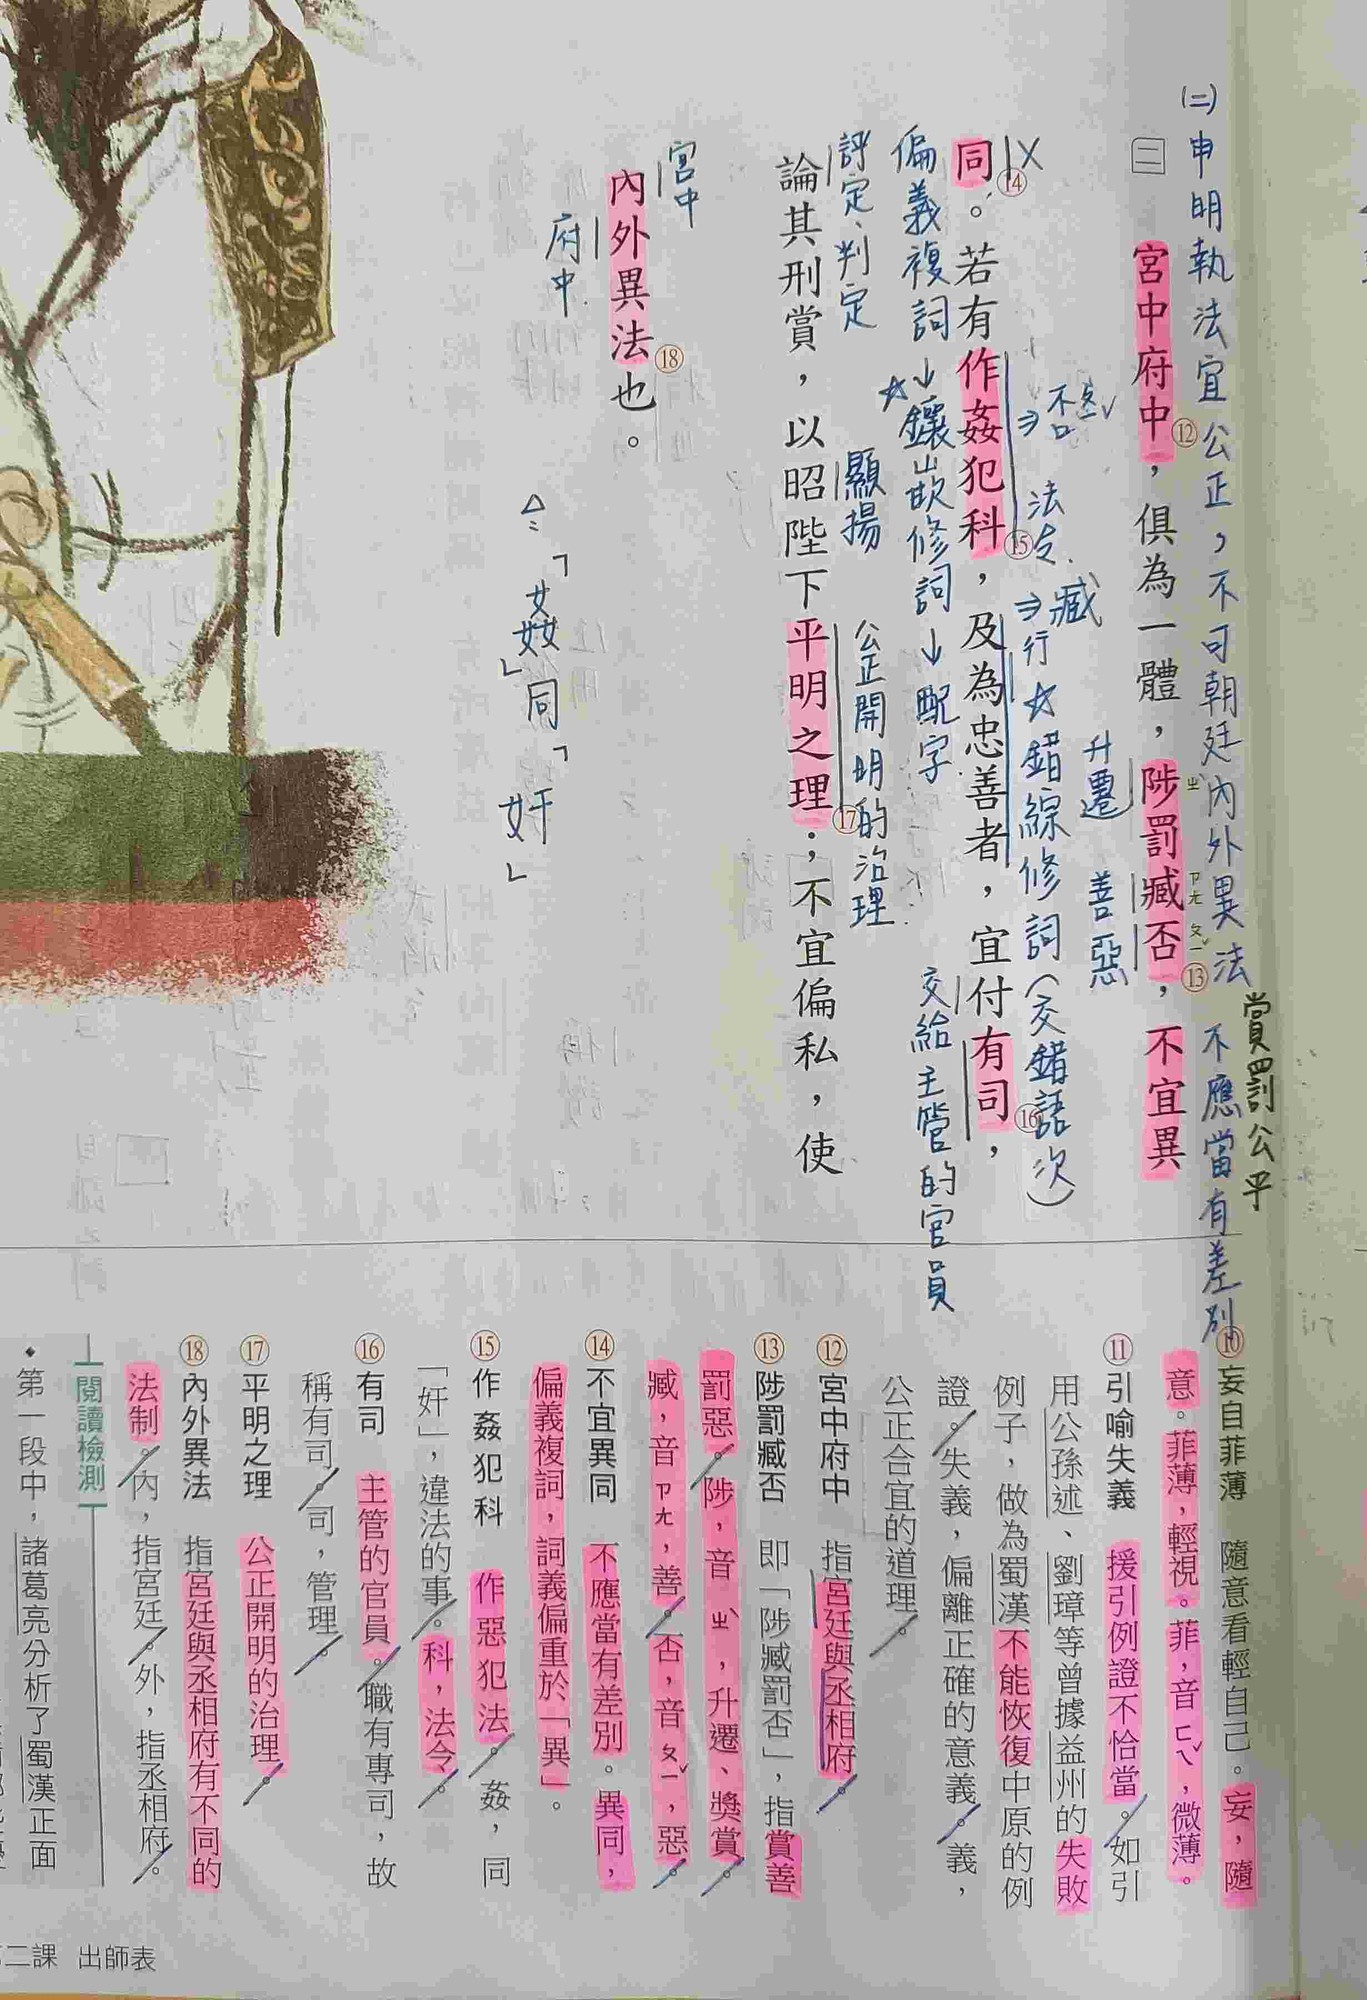 ㈡申明執法宜公正,不可朝廷內外異法
賞罰公平
不應當有差別
二 宮中府中⑫,俱為一體,陟罰臧否⑬,不宜異
ㄓˋ ㄗㄤ ㄆㄧˇ
升遷 善 惡
⇒否ㄆㄧˇ 法令 ⇒臧
行 ☆錯綜修詞(交錯語次)
同⑭。若有作姦犯科⑮,及為忠善者,宜付有司⑯,
偏義複詞↓☆鑲嵌修詞↓配字
交給主管的官員
評定、判定 顯揚 公正開明的治理
論其刑賞,以昭陛下平明之理⑰;不宜偏私,使
宮中
內外異法⑱也。
府中
△:「姦」同「奸」
⑩妄自菲薄 隨意看輕自己。妄,隨
意。菲薄,輕視。菲,音ㄈㄟˇ,微薄。
⑪引喻失義 援引例證不恰當。如引
用公孫述、劉璋等曾據益州的失敗
例子,做為蜀漢不能恢復中原的例
證。失義,偏離正確的意義。義,
公正合宜的道理。
⑫宮中府中 指宮廷與丞相府。
⑬陟罰臧否 即「陟臧罰否」,指賞善
罰惡。陟,音ㄓˋ,升遷、獎賞。
臧,音ㄗㄤ,善。否,音ㄆㄧˇ,惡。
⑭不宜異同 不應當有差別。異同,
偏義複詞,詞義偏重於「異」。
⑮作姦犯科 作惡犯法。姦,同
「奸」,違法的事。科,法令。
⑯有司 主管的官員。職有專司,故
稱有司。司,管理。
⑰平明之理 公正開明的治理。
⑱內外異法 指宮廷與丞相府有不同的
法制。內,指宮廷。外,指丞相府。
閱讀檢測
◆第一段中,諸葛亮分析了蜀漢正面
二課 出師表